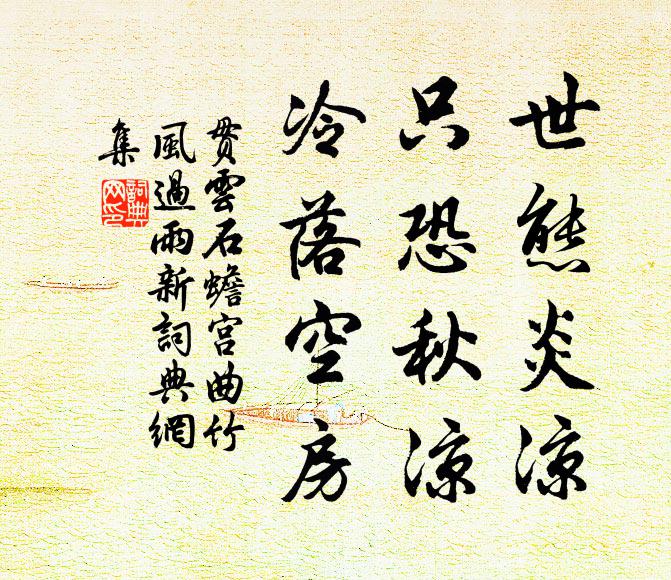 世態炎涼
只恐秋涼
冷落空房
貫雲石蟾宮曲竹
風過雨新詞典網
集
詞典
网印